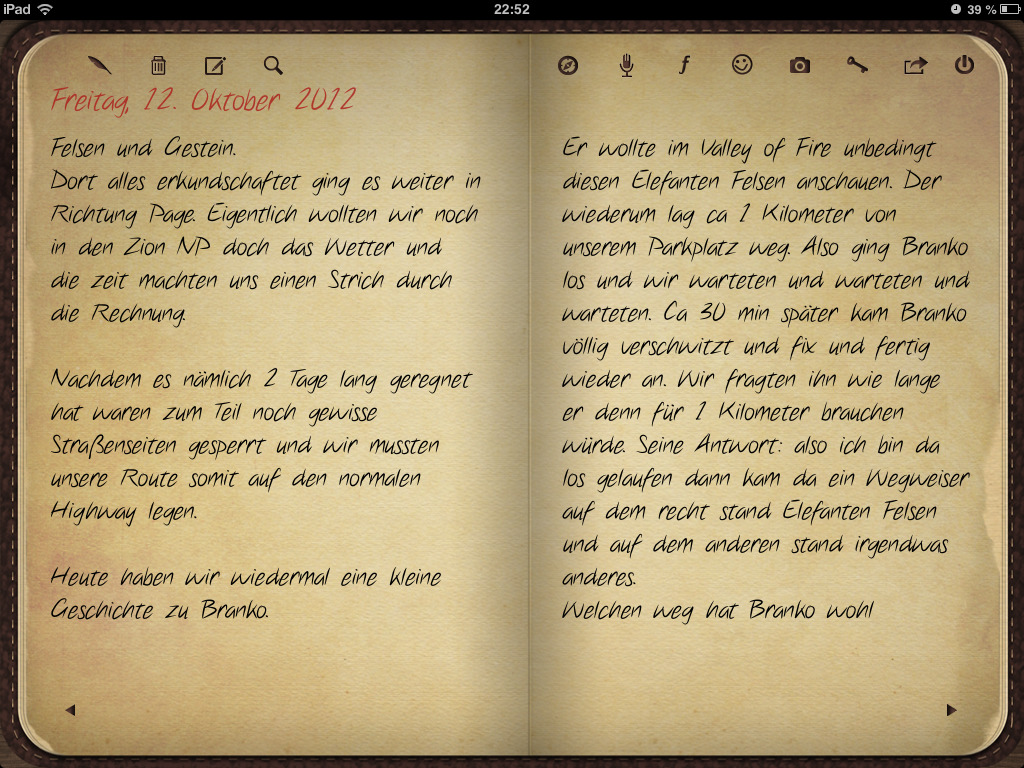 iPad 22:52 39 %
Freitag, 12. Oktober 2012
Felsen und Gestein.
Dort alles erkundschaftet ging es weiter in
Richtung Page. Eigentlich wollten wir noch
in den Zion NP doch das Wetter und
die zeit machten uns einen Strich durch
die Rechnung.
Nachdem es nämlich 2 Tage lang geregnet
hat waren zum Teil noch gewisse
Straßenseiten gesperrt und wir mussten
unsere Route somit auf den normalen
Highway legen.
Heute haben wir wiedermal eine kleine
Geschichte zu Branko.
Er wollte im Valley of Fire unbedingt
diesen Elefanten Felsen anschauen. Der
wiederum lag ca 1 Kilometer von
unserem Parkplatz weg. Also ging Branko
los und wir warteten und warteten und
warteten. Ca 30 min später kam Branko
völlig verschwitzt und fix und fertig
wieder an. Wir fragten ihn wie lange
er denn für 1 Kilometer brauchen
würde. Seine Antwort: also ich bin da
los gelaufen dann kam da ein Wegweiser
auf dem recht stand Elefanten Felsen
und auf dem anderen stand irgendwas
anderes.
Welchen weg hat Branko wohl